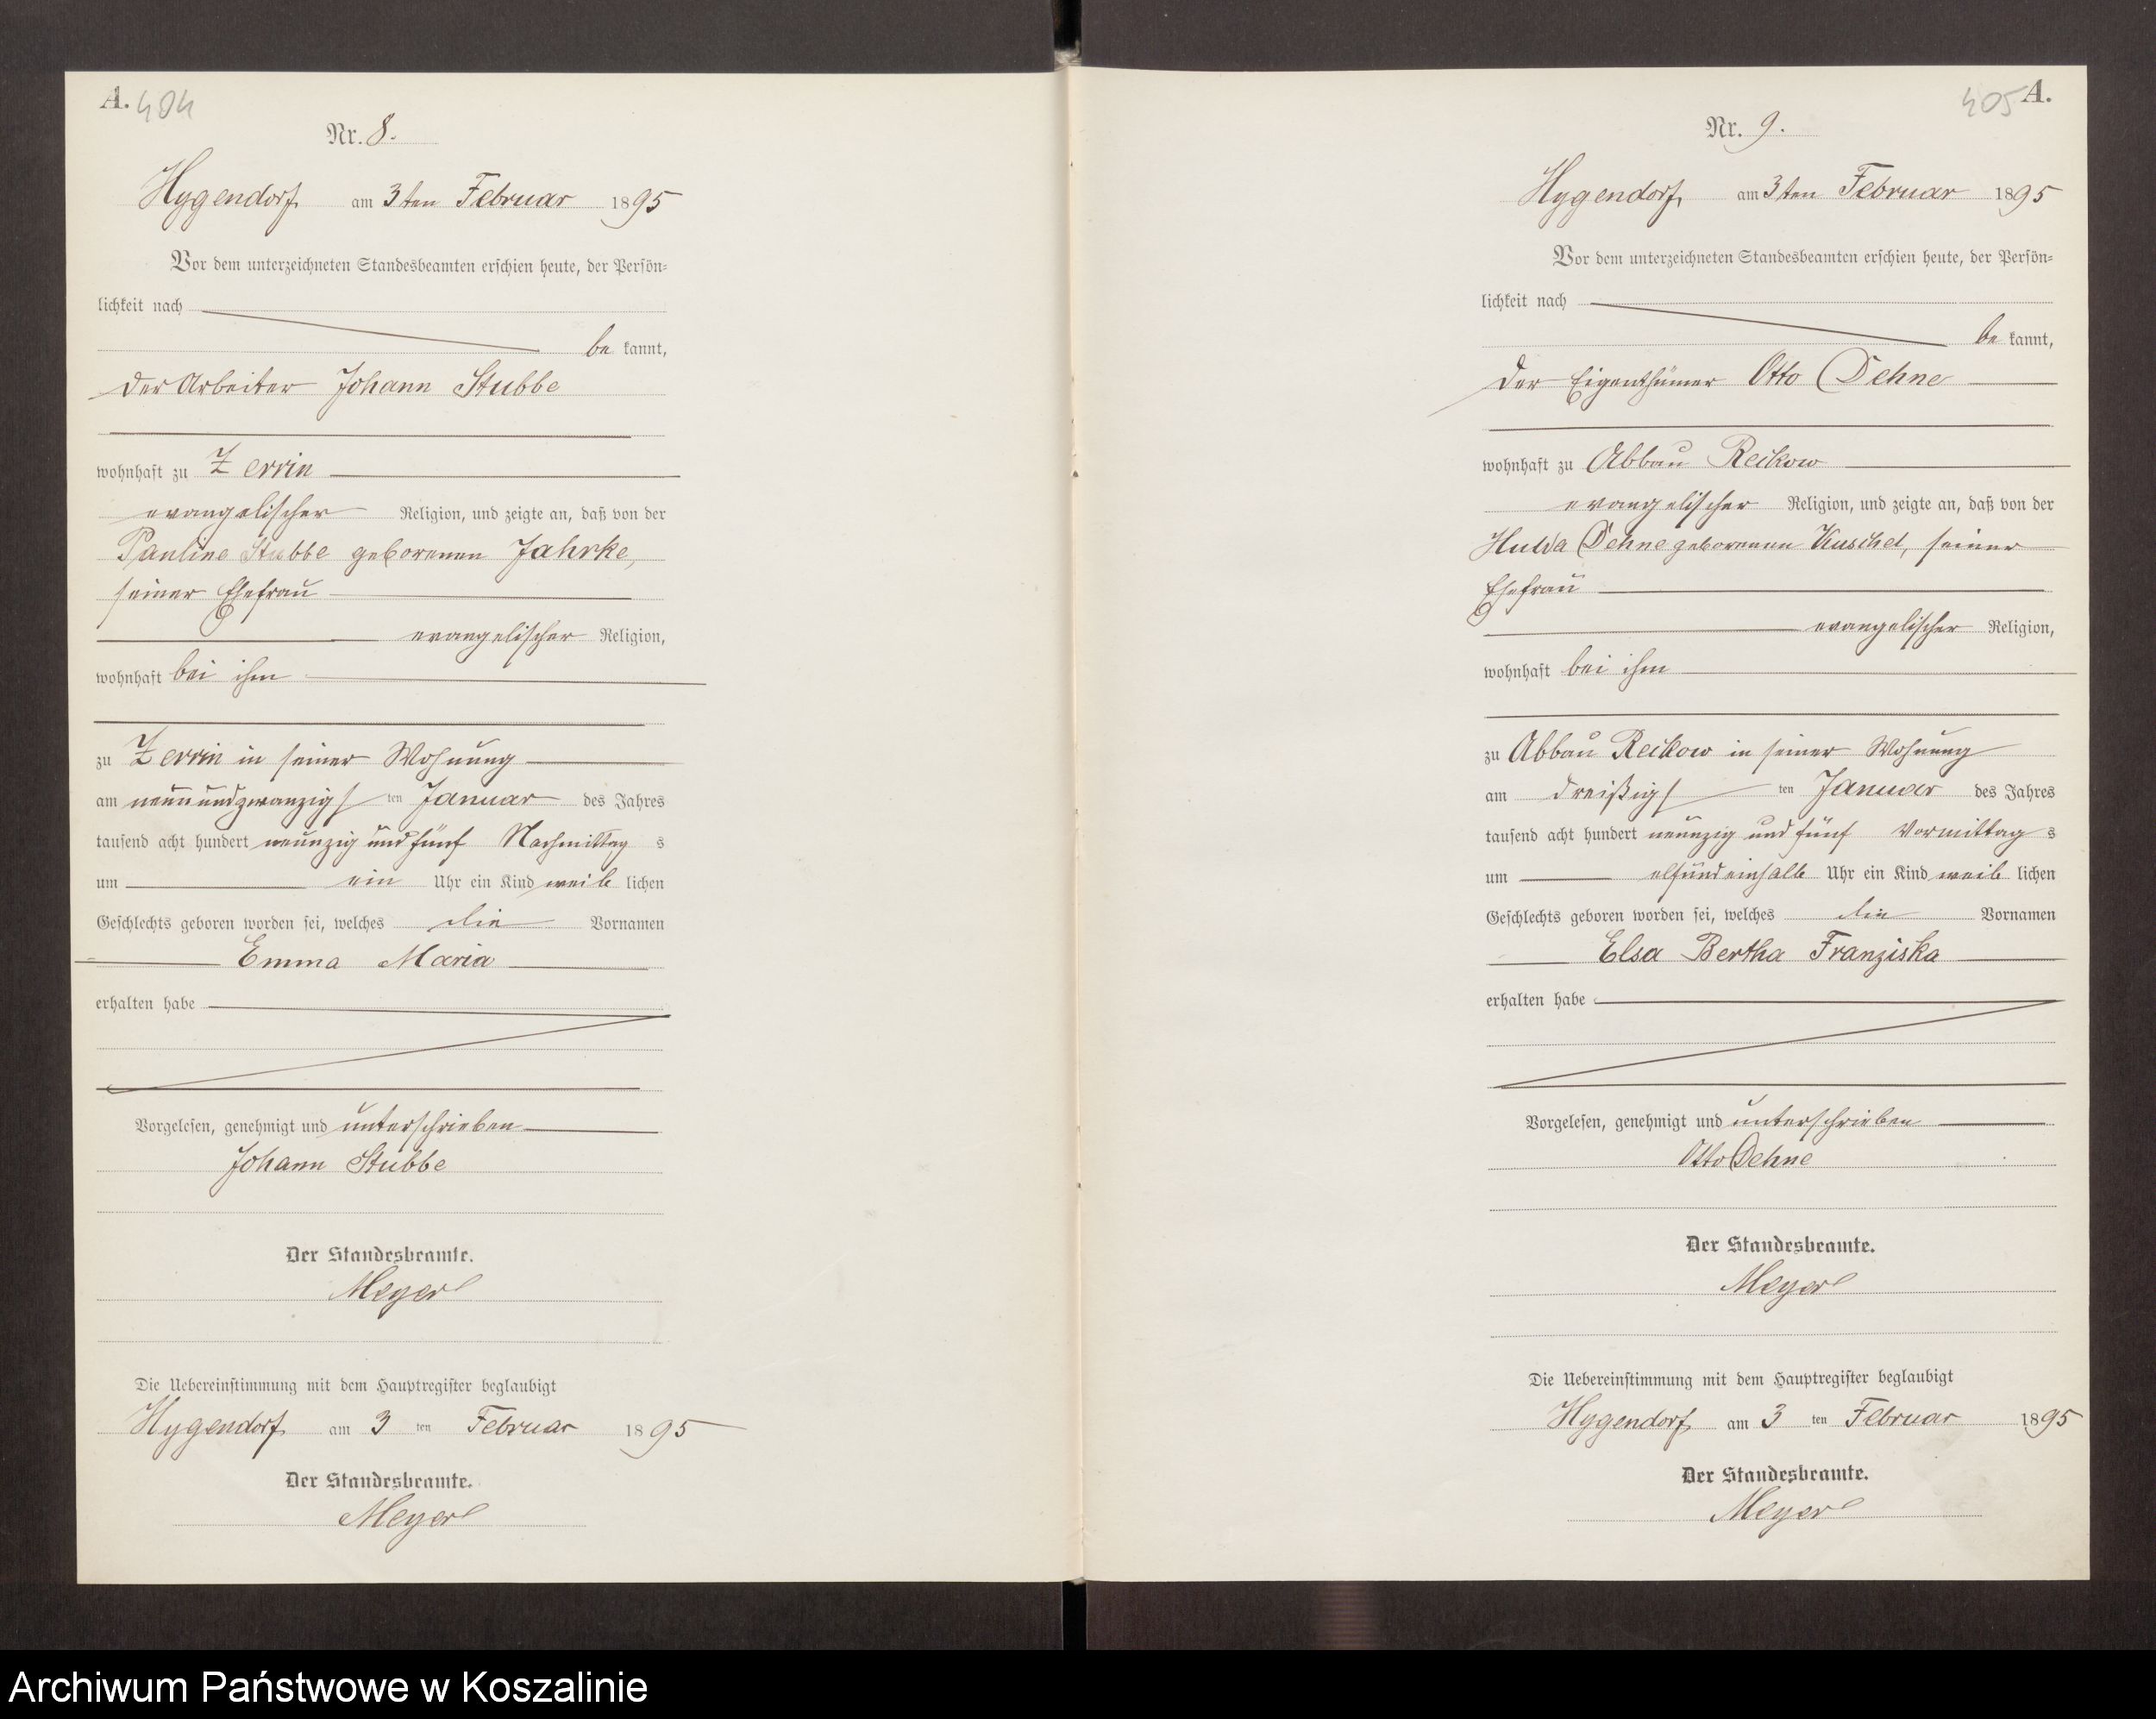 A.
404
Nr. 8.
Hygendorf, am 3ten Februar 1895
Vor dem unterzeichneten Standesbeamten erschien heute, der Persön-
lichkeit nach
be kannt,
der Arbeiter Johann Stubbe
wohnhaft zu Zerrin
evangelischer Religion, und zeigte an, daß von der
Pauline Stubbe geborenen Jahrke,
seiner Ehefrau
evangelischer Religion,
wohnhaft bei ihm
zu Zerrin in seiner Wohnung
am neunundzwanzigs ten Januar des Jahres
tausend acht hundert neunzig und fünf Nachmittag s
um ein Uhr ein Kind weib lichen
Geschlechts geboren worden sei, welches die Vornamen
Emma Maria
erhalten habe
Vorgelesen, genehmigt und unterschrieben
Johann Stubbe
Der Standesbeamte.
Meyer
Die Uebereinstimmung mit dem Hauptregister beglaubigt
Hygendorf, am 3 ten Februar 1895
Der Standesbeamte.
Meyer
405 A.
Nr. 9.
Hygendorf, am 3ten Februar 1895
Vor dem unterzeichneten Standesbeamten erschien heute, der Persön-
lichkeit nach
be kannt,
der Eigenthümer Otto Dehne
wohnhaft zu Abbau Reckow
evangelischer Religion, und zeigte an, daß von der
Hulda Dehne geborenen Kuschel, seiner
Ehefrau
evangelischer Religion,
wohnhaft bei ihm
zu Abbau Reckow in seiner Wohnung
am dreißigs ten Januar des Jahres
tausend acht hundert neunzig und fünf Vormittag s
um elfundeinhalb Uhr ein Kind weib lichen
Geschlechts geboren worden sei, welches die Vornamen
Elsa Bertha Franziska
erhalten habe
Vorgelesen, genehmigt und unterschrieben
Otto Dehne
Der Standesbeamte.
Meyer
Die Uebereinstimmung mit dem Hauptregister beglaubigt
Hygendorf, am 3 ten Februar 1895
Der Standesbeamte.
Meyer
Archiwum Państwowe w Koszalinie